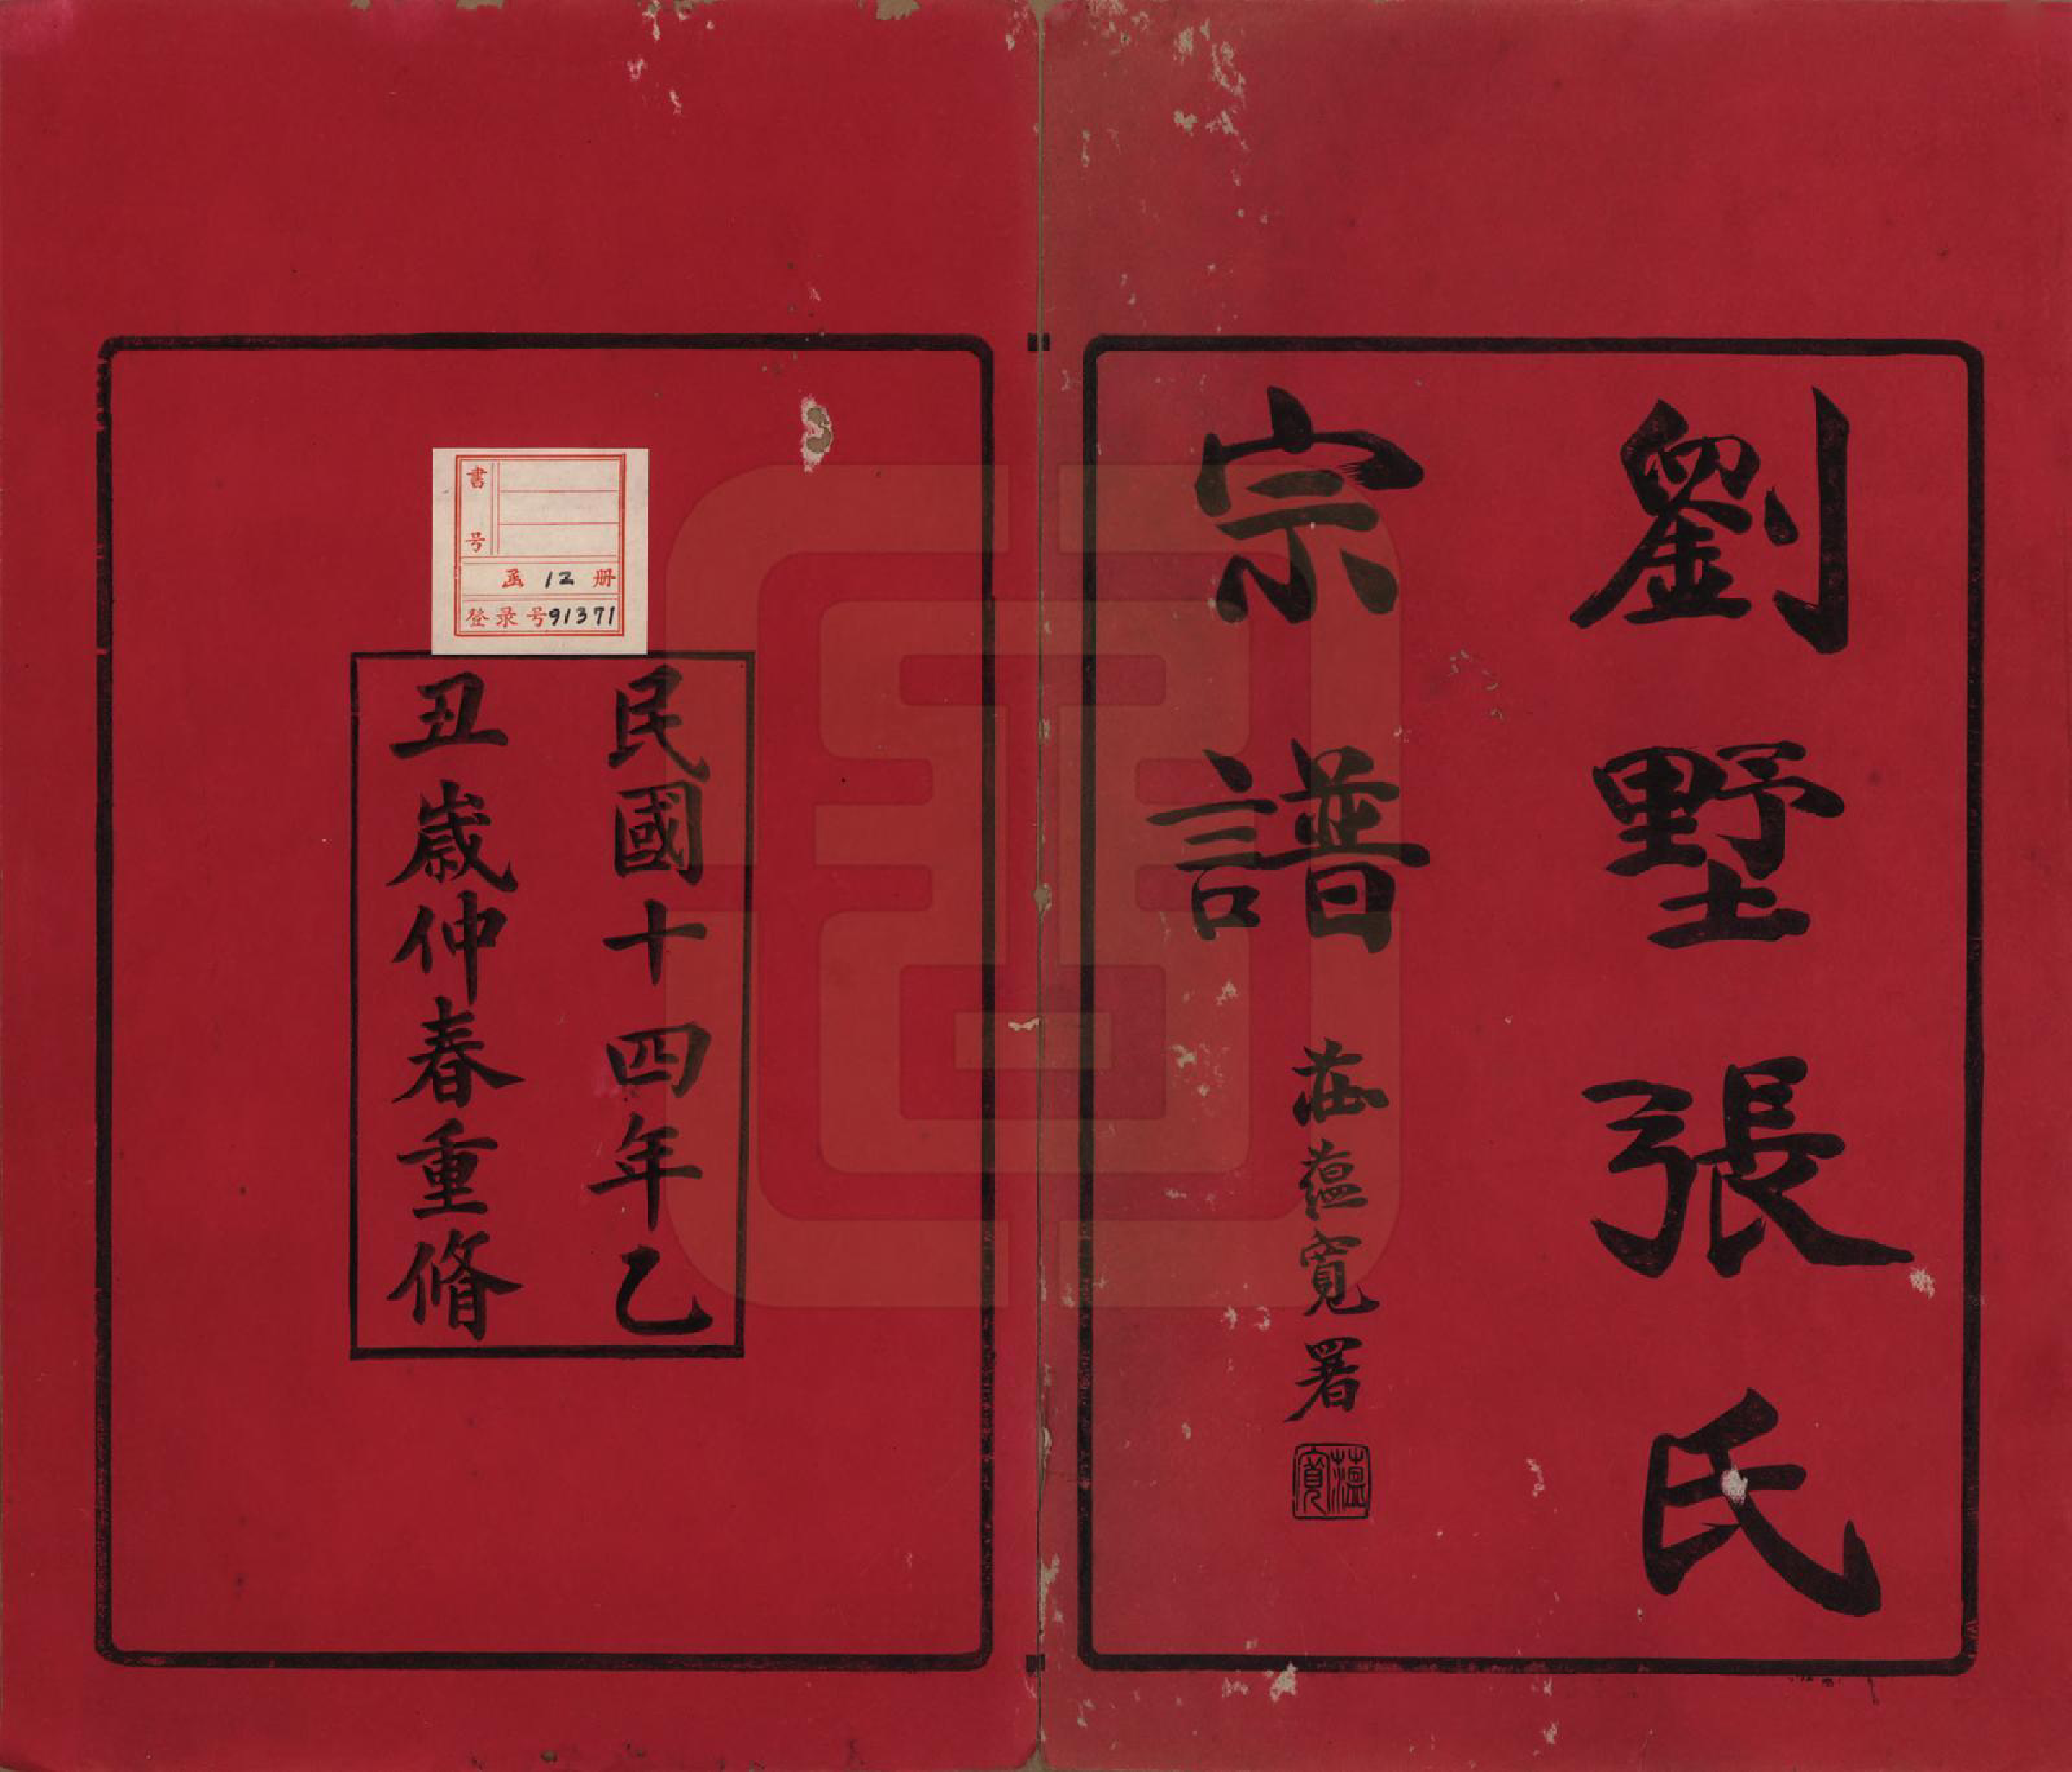 劉墅張氏
宗譜
莊蘊寬署
蘊寬
民國十四年乙
丑歲仲春重脩
書号
函 12 册
登录号91371